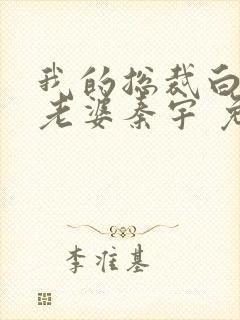 我的总裁白
老婆秦宇
李准基